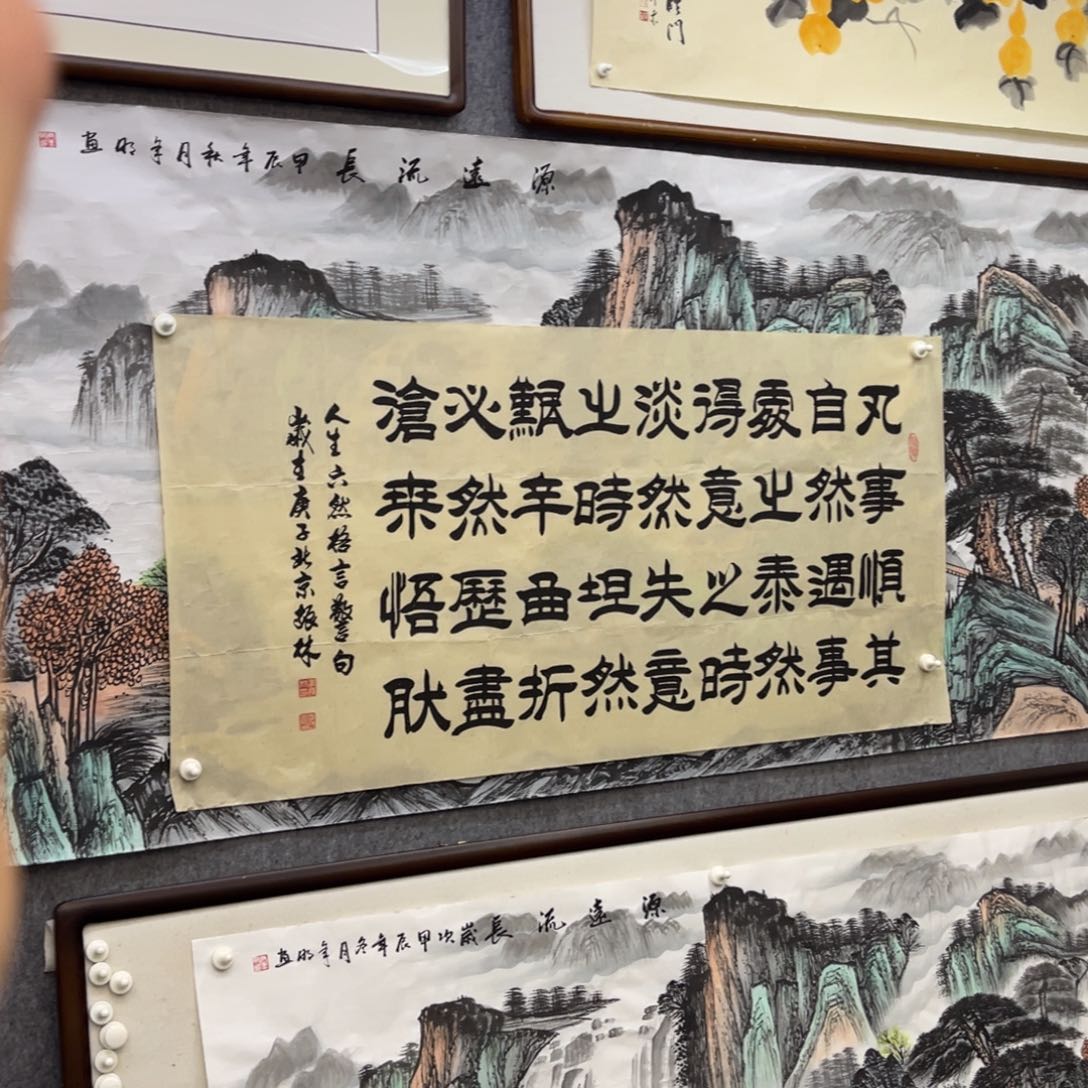 源遠流長 甲辰年秋月年明画
凡事順其
自然遇事
處之泰然
得意之時
淡然失意
之時坦然
艱辛曲折
必然歷盡
滄桒悟肰
人生六然格言警句
歲在庚子北京振林
源遠流長 歲次甲辰年冬月年明画